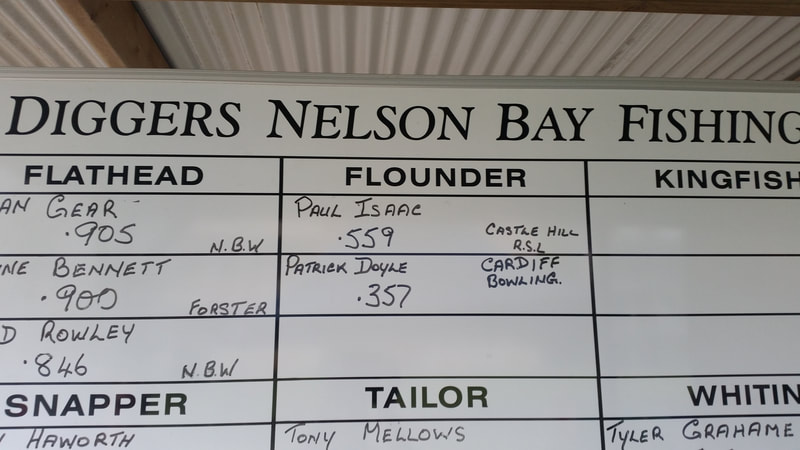 DIGGERS NELSON BAY FISHING
FLATHEAD
FLOUNDER
KINGFISH
AN GEAR
.905
N.B.W
PAUL ISAAC
.559
CASTLE HILL
R.S.L
NE BENNETT
.900
FORSTER
PATRICK DOYLE
.357
CARDIFF
BOWLING.
D ROWLEY
.846
N.B.W
SNAPPER
TAILOR
WHITIN
HAWORTH
TONY MELLOWS
TYLER GRAHAME